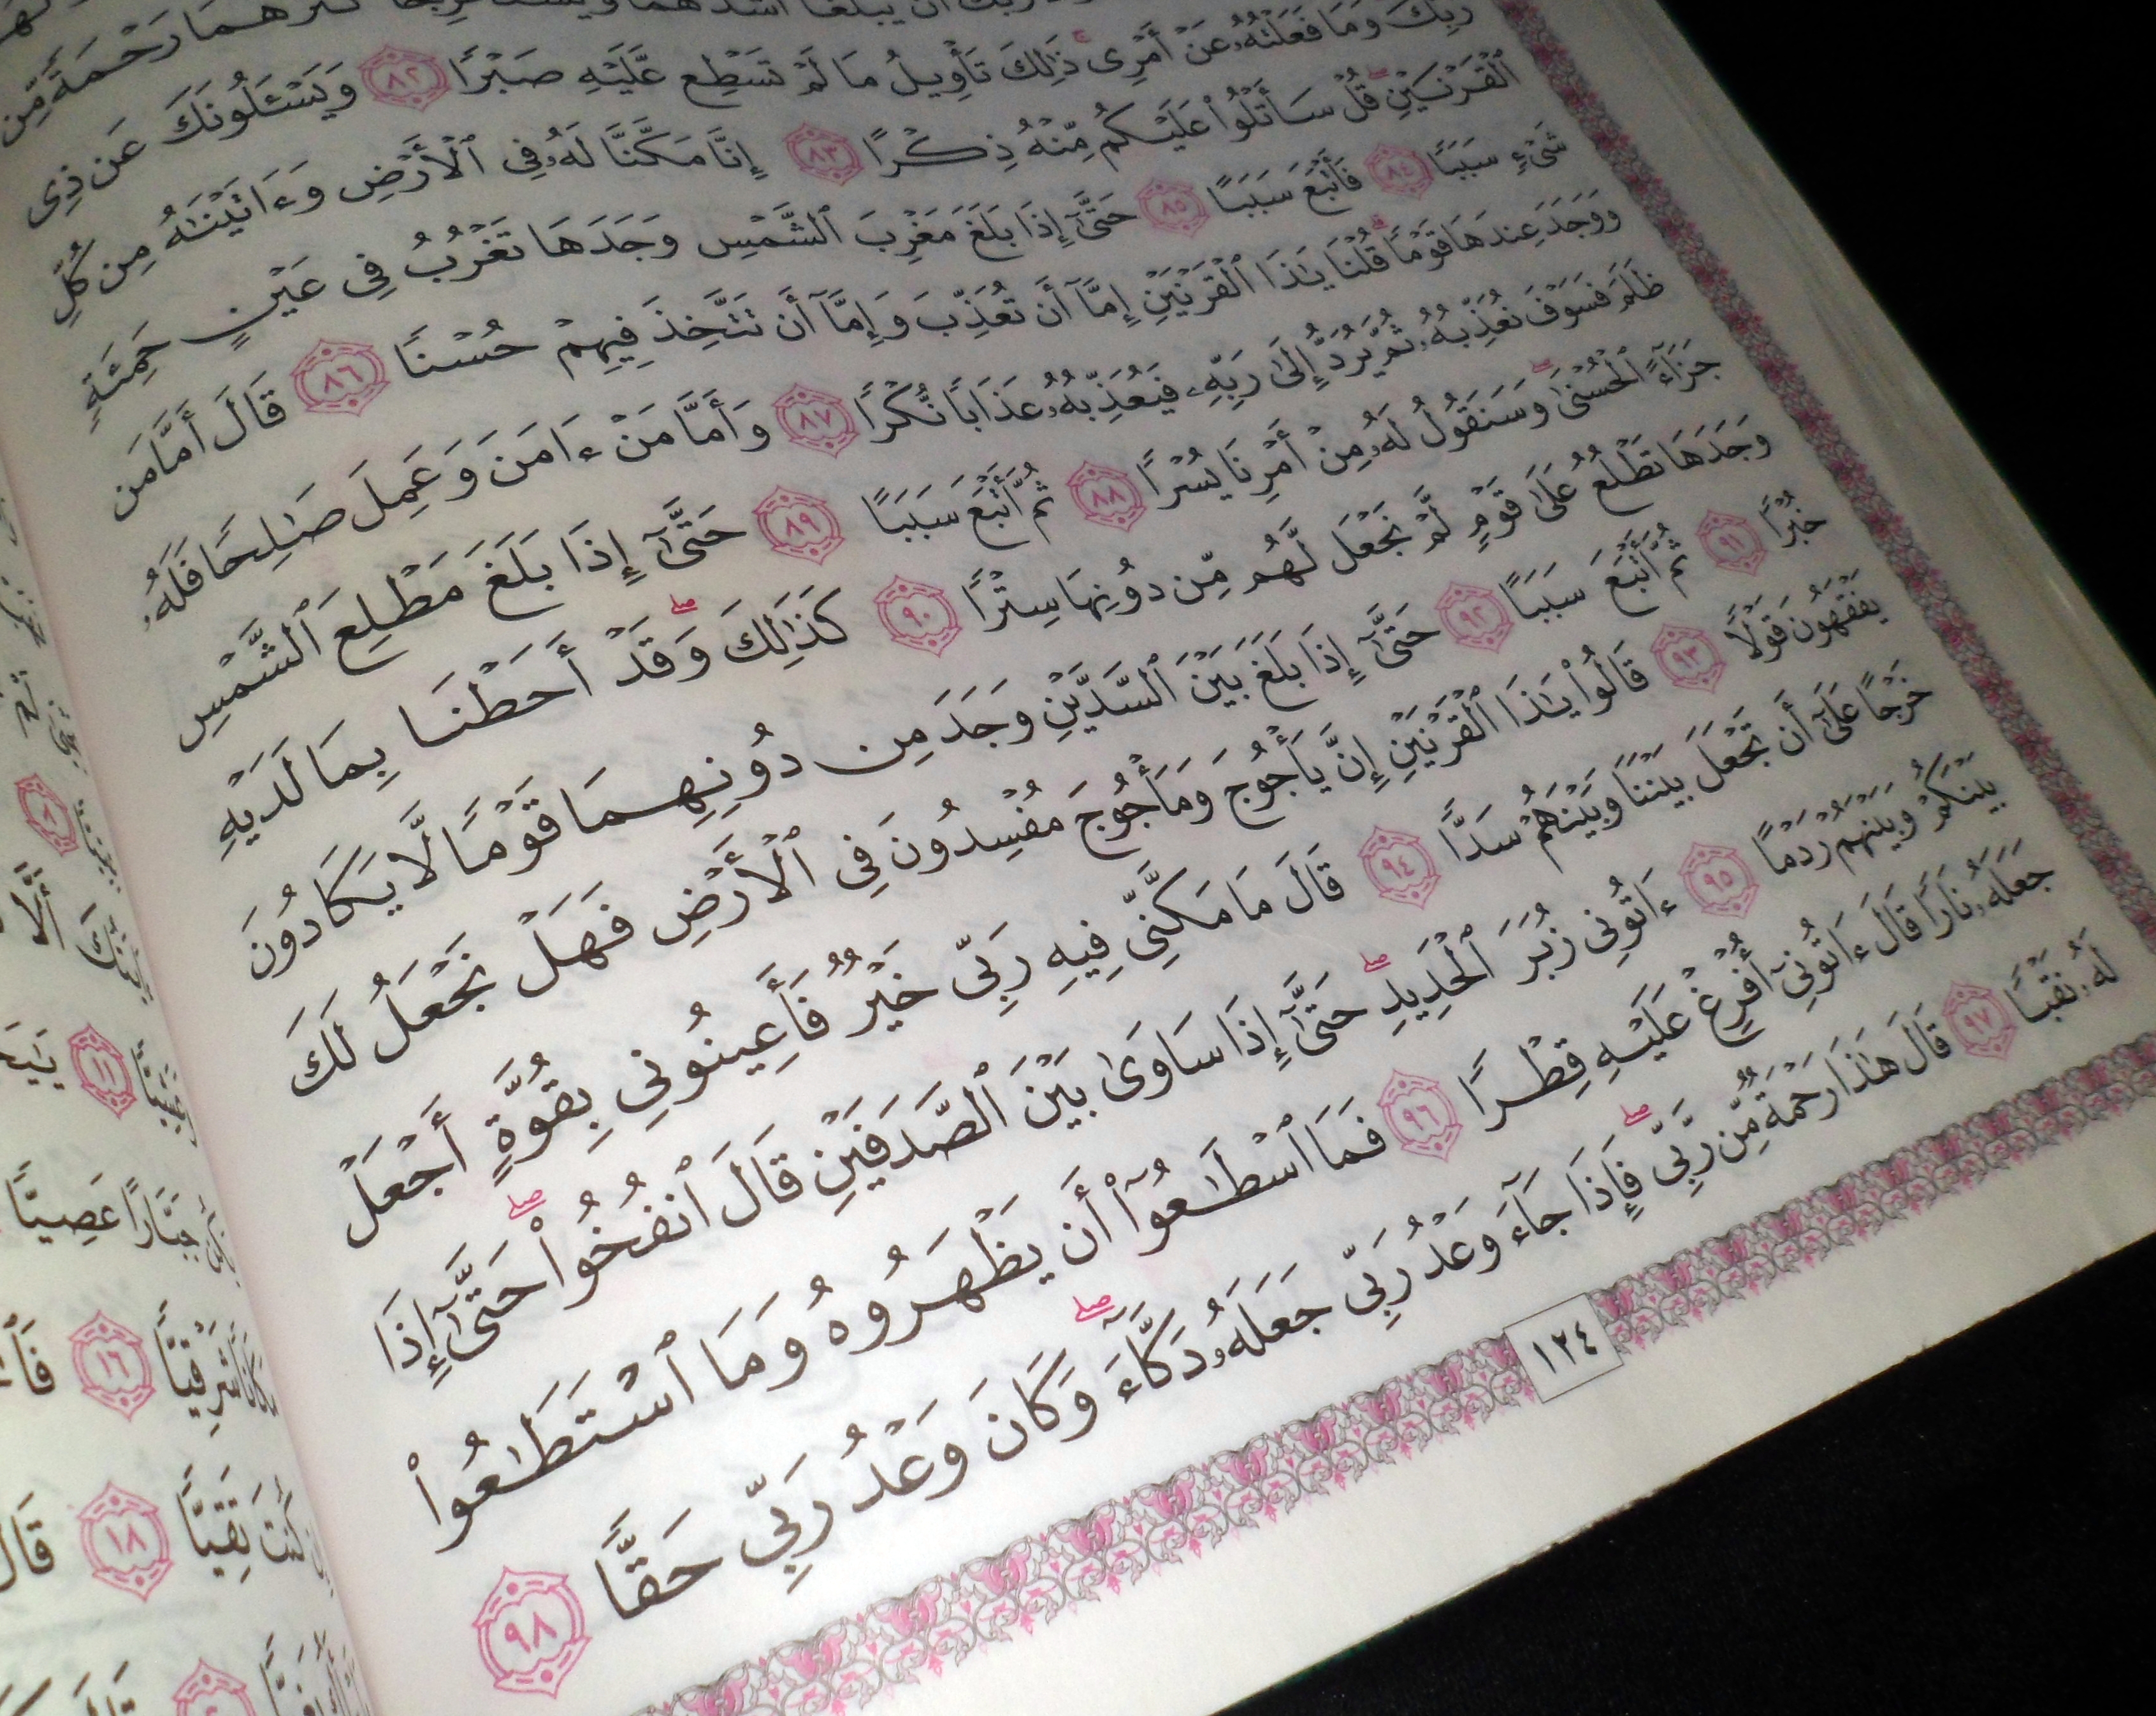 يَبْلُغَا أَشُدَّهُمَا وَيَسْتَخْرِجَا كَنزَهُمَا رَحْمَةً مِّن
رَّبِّكَ وَمَا فَعَلْتُهُۥ عَنْ أَمْرِى ۚ ذَٰلِكَ تَأْوِيلُ مَا لَمْ تَسْطِع عَّلَيْهِ صَبْرًا ٨٢ وَيَسْـَٔلُونَكَ عَن ذِى
ٱلْقَرْنَيْنِ ۖ قُلْ سَأَتْلُوا۟ عَلَيْكُم مِّنْهُ ذِكْرًا ٨٣ إِنَّا مَكَّنَّا لَهُۥ فِى ٱلْأَرْضِ وَءَاتَيْنَٰهُ مِن كُلِّ
شَىْءٍ سَبَبًا ٨٤ فَأَتْبَعَ سَبَبًا ٨٥ حَتَّىٰٓ إِذَا بَلَغَ مَغْرِبَ ٱلشَّمْسِ وَجَدَهَا تَغْرُبُ فِى عَيْنٍ حَمِئَةٍ
وَوَجَدَ عِندَهَا قَوْمًا ۗ قُلْنَا يَٰذَا ٱلْقَرْنَيْنِ إِمَّآ أَن تُعَذِّبَ وَإِمَّآ أَن تَتَّخِذَ فِيهِمْ حُسْنًا ٨٦ قَالَ أَمَّا مَن
ظَلَمَ فَسَوْفَ نُعَذِّبُهُۥ ثُمَّ يُرَدُّ إِلَىٰ رَبِّهِۦ فَيُعَذِّبُهُۥ عَذَابًا نُّكْرًا ٨٧ وَأَمَّا مَنْ ءَامَنَ وَعَمِلَ صَٰلِحًا فَلَهُۥ
جَزَآءً ٱلْحُسْنَىٰ ۖ وَسَنَقُولُ لَهُۥ مِنْ أَمْرِنَا يُسْرًا ٨٨ ثُمَّ أَتْبَعَ سَبَبًا ٨٩ حَتَّىٰٓ إِذَا بَلَغَ مَطْلِعَ ٱلشَّمْسِ
وَجَدَهَا تَطْلُعُ عَلَىٰ قَوْمٍ لَّمْ نَجْعَل لَّهُم مِّن دُونِهَا سِتْرًا ٩٠ كَذَٰلِكَ ۖ وَقَدْ أَحَطْنَا بِمَا لَدَيْهِ
خُبْرًا ٩١ ثُمَّ أَتْبَعَ سَبَبًا ٩٢ حَتَّىٰٓ إِذَا بَلَغَ بَيْنَ ٱلسَّدَّيْنِ وَجَدَ مِن دُونِهِمَا قَوْمًا لَّا يَكَادُونَ
يَفْقَهُونَ قَوْلًا ٩٣ قَالُوا۟ يَٰذَا ٱلْقَرْنَيْنِ إِنَّ يَأْجُوجَ وَمَأْجُوجَ مُفْسِدُونَ فِى ٱلْأَرْضِ فَهَلْ نَجْعَلُ لَكَ
خَرْجًا عَلَىٰٓ أَن تَجْعَلَ بَيْنَنَا وَبَيْنَهُمْ سَدًّا ٩٤ قَالَ مَا مَكَّنِّى فِيهِ رَبِّى خَيْرٌ فَأَعِينُونِى بِقُوَّةٍ أَجْعَلْ
بَيْنَكُمْ وَبَيْنَهُمْ رَدْمًا ٩٥ ءَاتُونِى زُبَرَ ٱلْحَدِيدِ ۖ حَتَّىٰٓ إِذَا سَاوَىٰ بَيْنَ ٱلصَّدَفَيْنِ قَالَ ٱنفُخُوا۟ ۖ حَتَّىٰٓ إِذَا
جَعَلَهُۥ نَارًا قَالَ ءَاتُونِىٓ أُفْرِغْ عَلَيْهِ قِطْرًا ٩٦ فَمَا ٱسْطَٰعُوٓا۟ أَن يَظْهَرُوهُ وَمَا ٱسْتَطَٰعُوا۟
لَهُۥ نَقْبًا ٩٧ قَالَ هَٰذَا رَحْمَةٌ مِّن رَّبِّى ۖ فَإِذَا جَآءَ وَعْدُ رَبِّى جَعَلَهُۥ دَكَّآءَ ۖ وَكَانَ وَعْدُ رَبِّى حَقًّا ٩٨
١٢٤
١١
جَبَّارًا عَصِيًّا
شَرْقِيًّا ١٦
كُنتَ تَقِيًّا ١٨ قَالَ